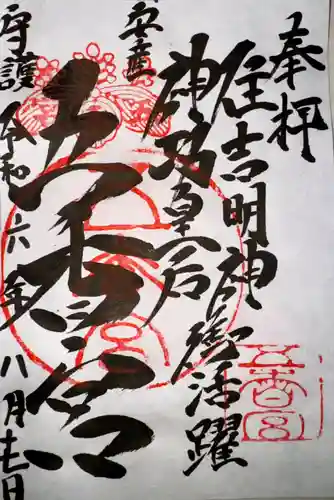 奉拝
住吉明神御活躍
神功皇后
安産
五香宮
守護
令和六年八月十七日
五香宮